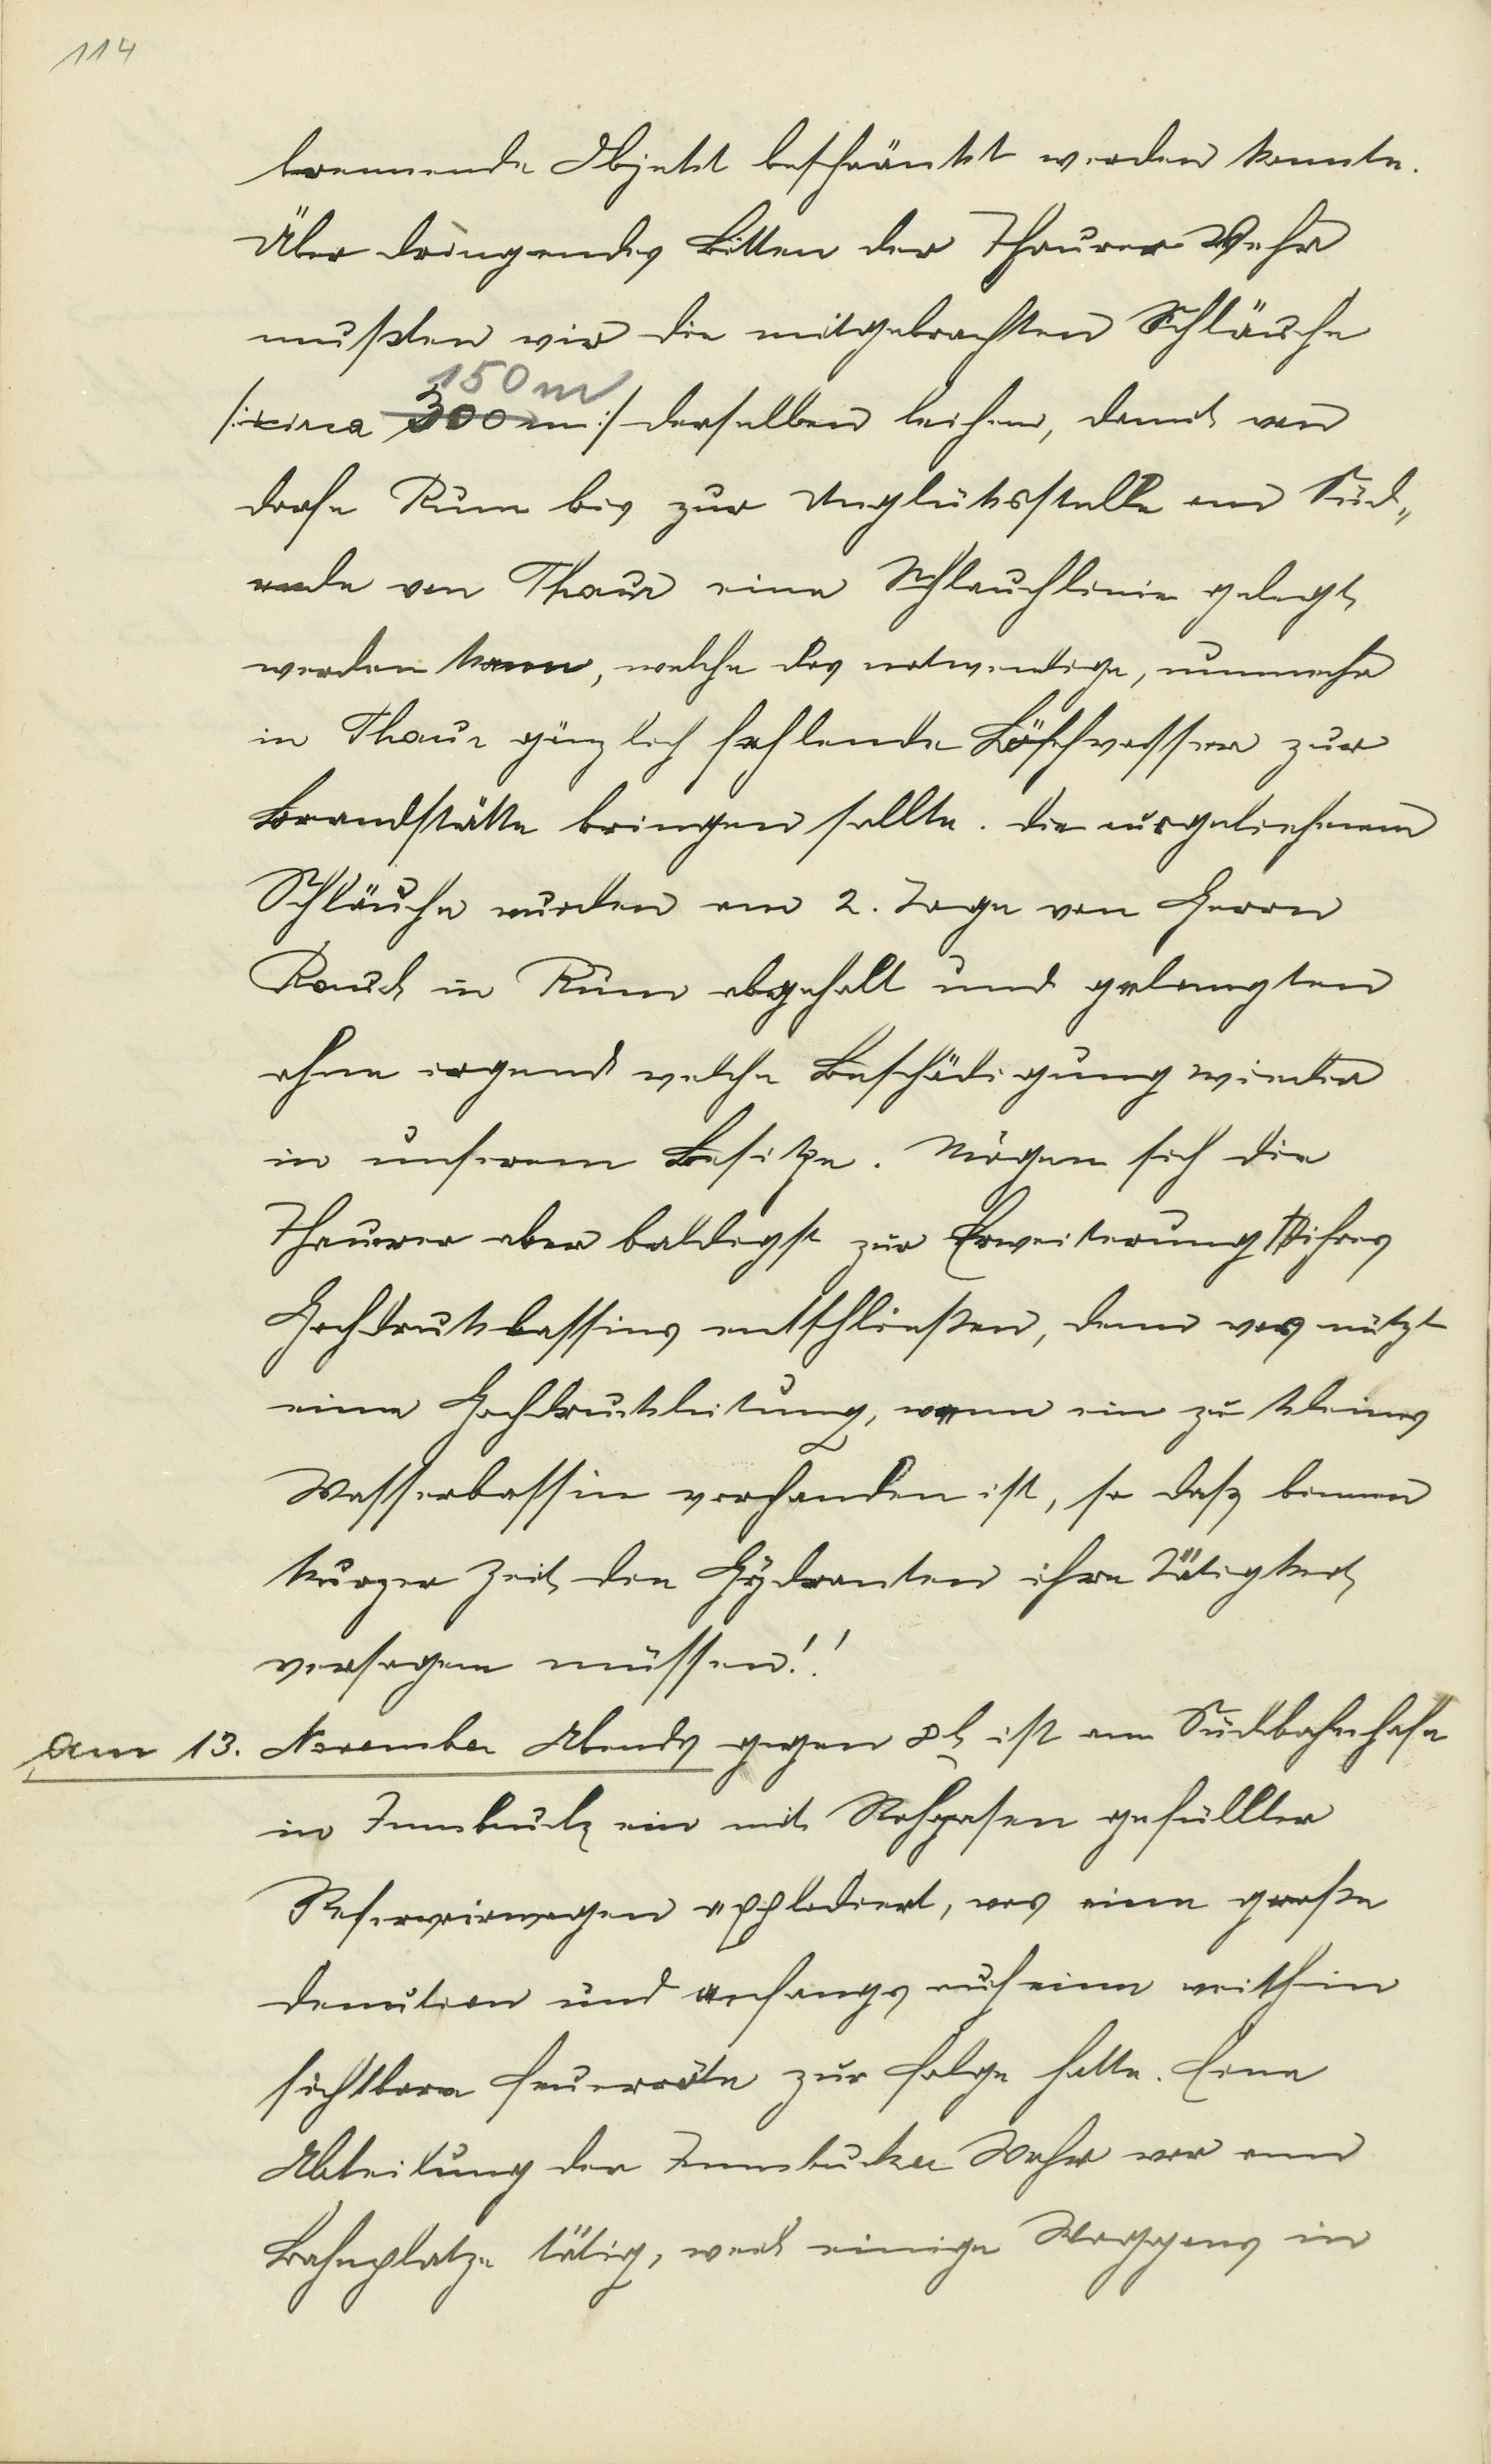 114
brennende Objekt beschränkt werden konnte.
Über dringendes Bitten der Thaurer Wehr
mußten wir die mitgebrachten Schläuche
150 m
/:circa 300 m:/ derselben leihen, damit von
Dorfe Rum bis zur Unglücksstelle am Süd„
ende von Thaur eine Schlauchlinie gelegt
werden kann, welche das notwendige, nunmehr
in Thaur gänzlich fehlende Löschwasser zur
Brandstätte bringen sollte. Die ausgeliehenen
Schläuche wurden am 2. Tage von Herrn
Rauch in Rum abgeholt und gelangten
ohne irgend welche Beschädigung wieder
in unserem Besitze. Mögen sich die
Thaurer aber baldigst zur Erweiterung ihres
Hochdruckbassins entschließen, denn was nützt
eine Hochdruckleitung, wenn ein zu kleines
Wasserbassin vorhanden ist, so daß binnen
kurzer Zeit die Hydranten ihre Tätigkeit
versagen müssen!!
Am 13. November Abends gegen 8h ist am Südbahnhofe
in Innsbruck ein mit Rohgasen gefüllter
Reservoirwagen explodiert, was eine große
Denution und anfangs auf eine weithin
sichtbare Feuerröte zur Folge hatte. Eine
Abteilung der Innsbrucker Wehr war am
Bahnplatze tätig, weil einige Waggons in